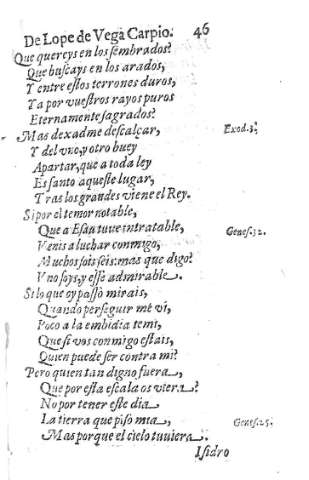 De Lope de Vega Carpio. 46
Que quereys en los sembrados?
Que buscays en los arados,
Y entre estos terrones duros,
Ya por vuestros rayos puros
Eternamente sagrados?
Mas dexadme descalçar, Exod.3.
Y del vno, y otro buey
Apartar, que a toda ley
Es santo aqueste lugar,
Tras los grandes viene el Rey.
Si por el temor notable,
Que a Esau tuue intratable, Genes.32.
Venis a luchar conmigo,
Muchos sois seis: mas que digo?
Vno soys, y esse admirable.
Si lo que oy passò mirais,
Quando perseguir me vi,
Poco a la embidia temi,
Que si vos conmigo estais,
Quien puede ser contra mi?
Pero quien tan digno fuera,
Que por esta escala os viera?
No por tener este dia
La tierra que pisò mia, Genes.25.
Mas porque el cielo tuuiera.
Isidro